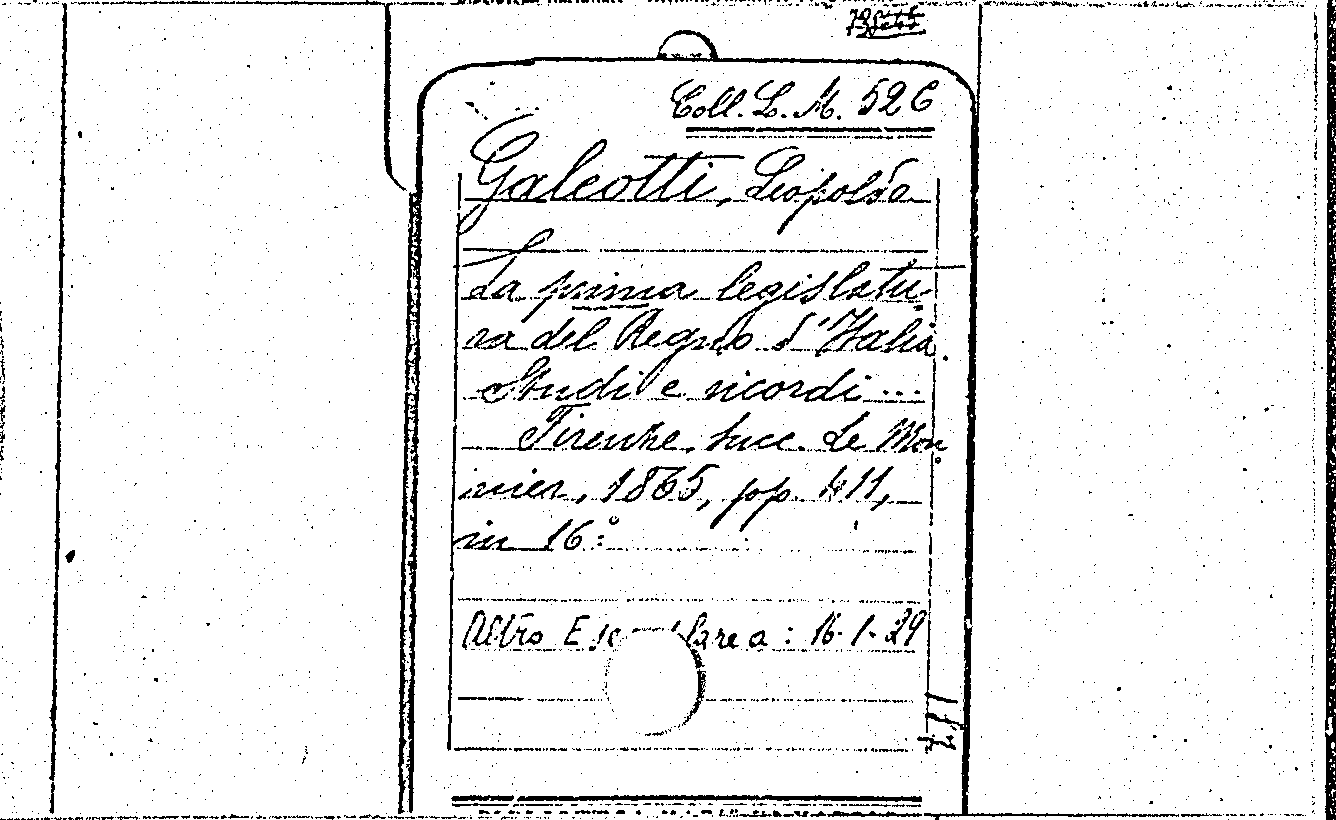 Coll. L. M. 526
Galeotti, Leopoldo
La prima legislatu-
ra del Regno d'Italia.
Studi e ricordi ...
Firenze, succ. Le Mon-
nier, 1865, pp. 411,
in 16°
Altro Esemplare a : 16-1-29